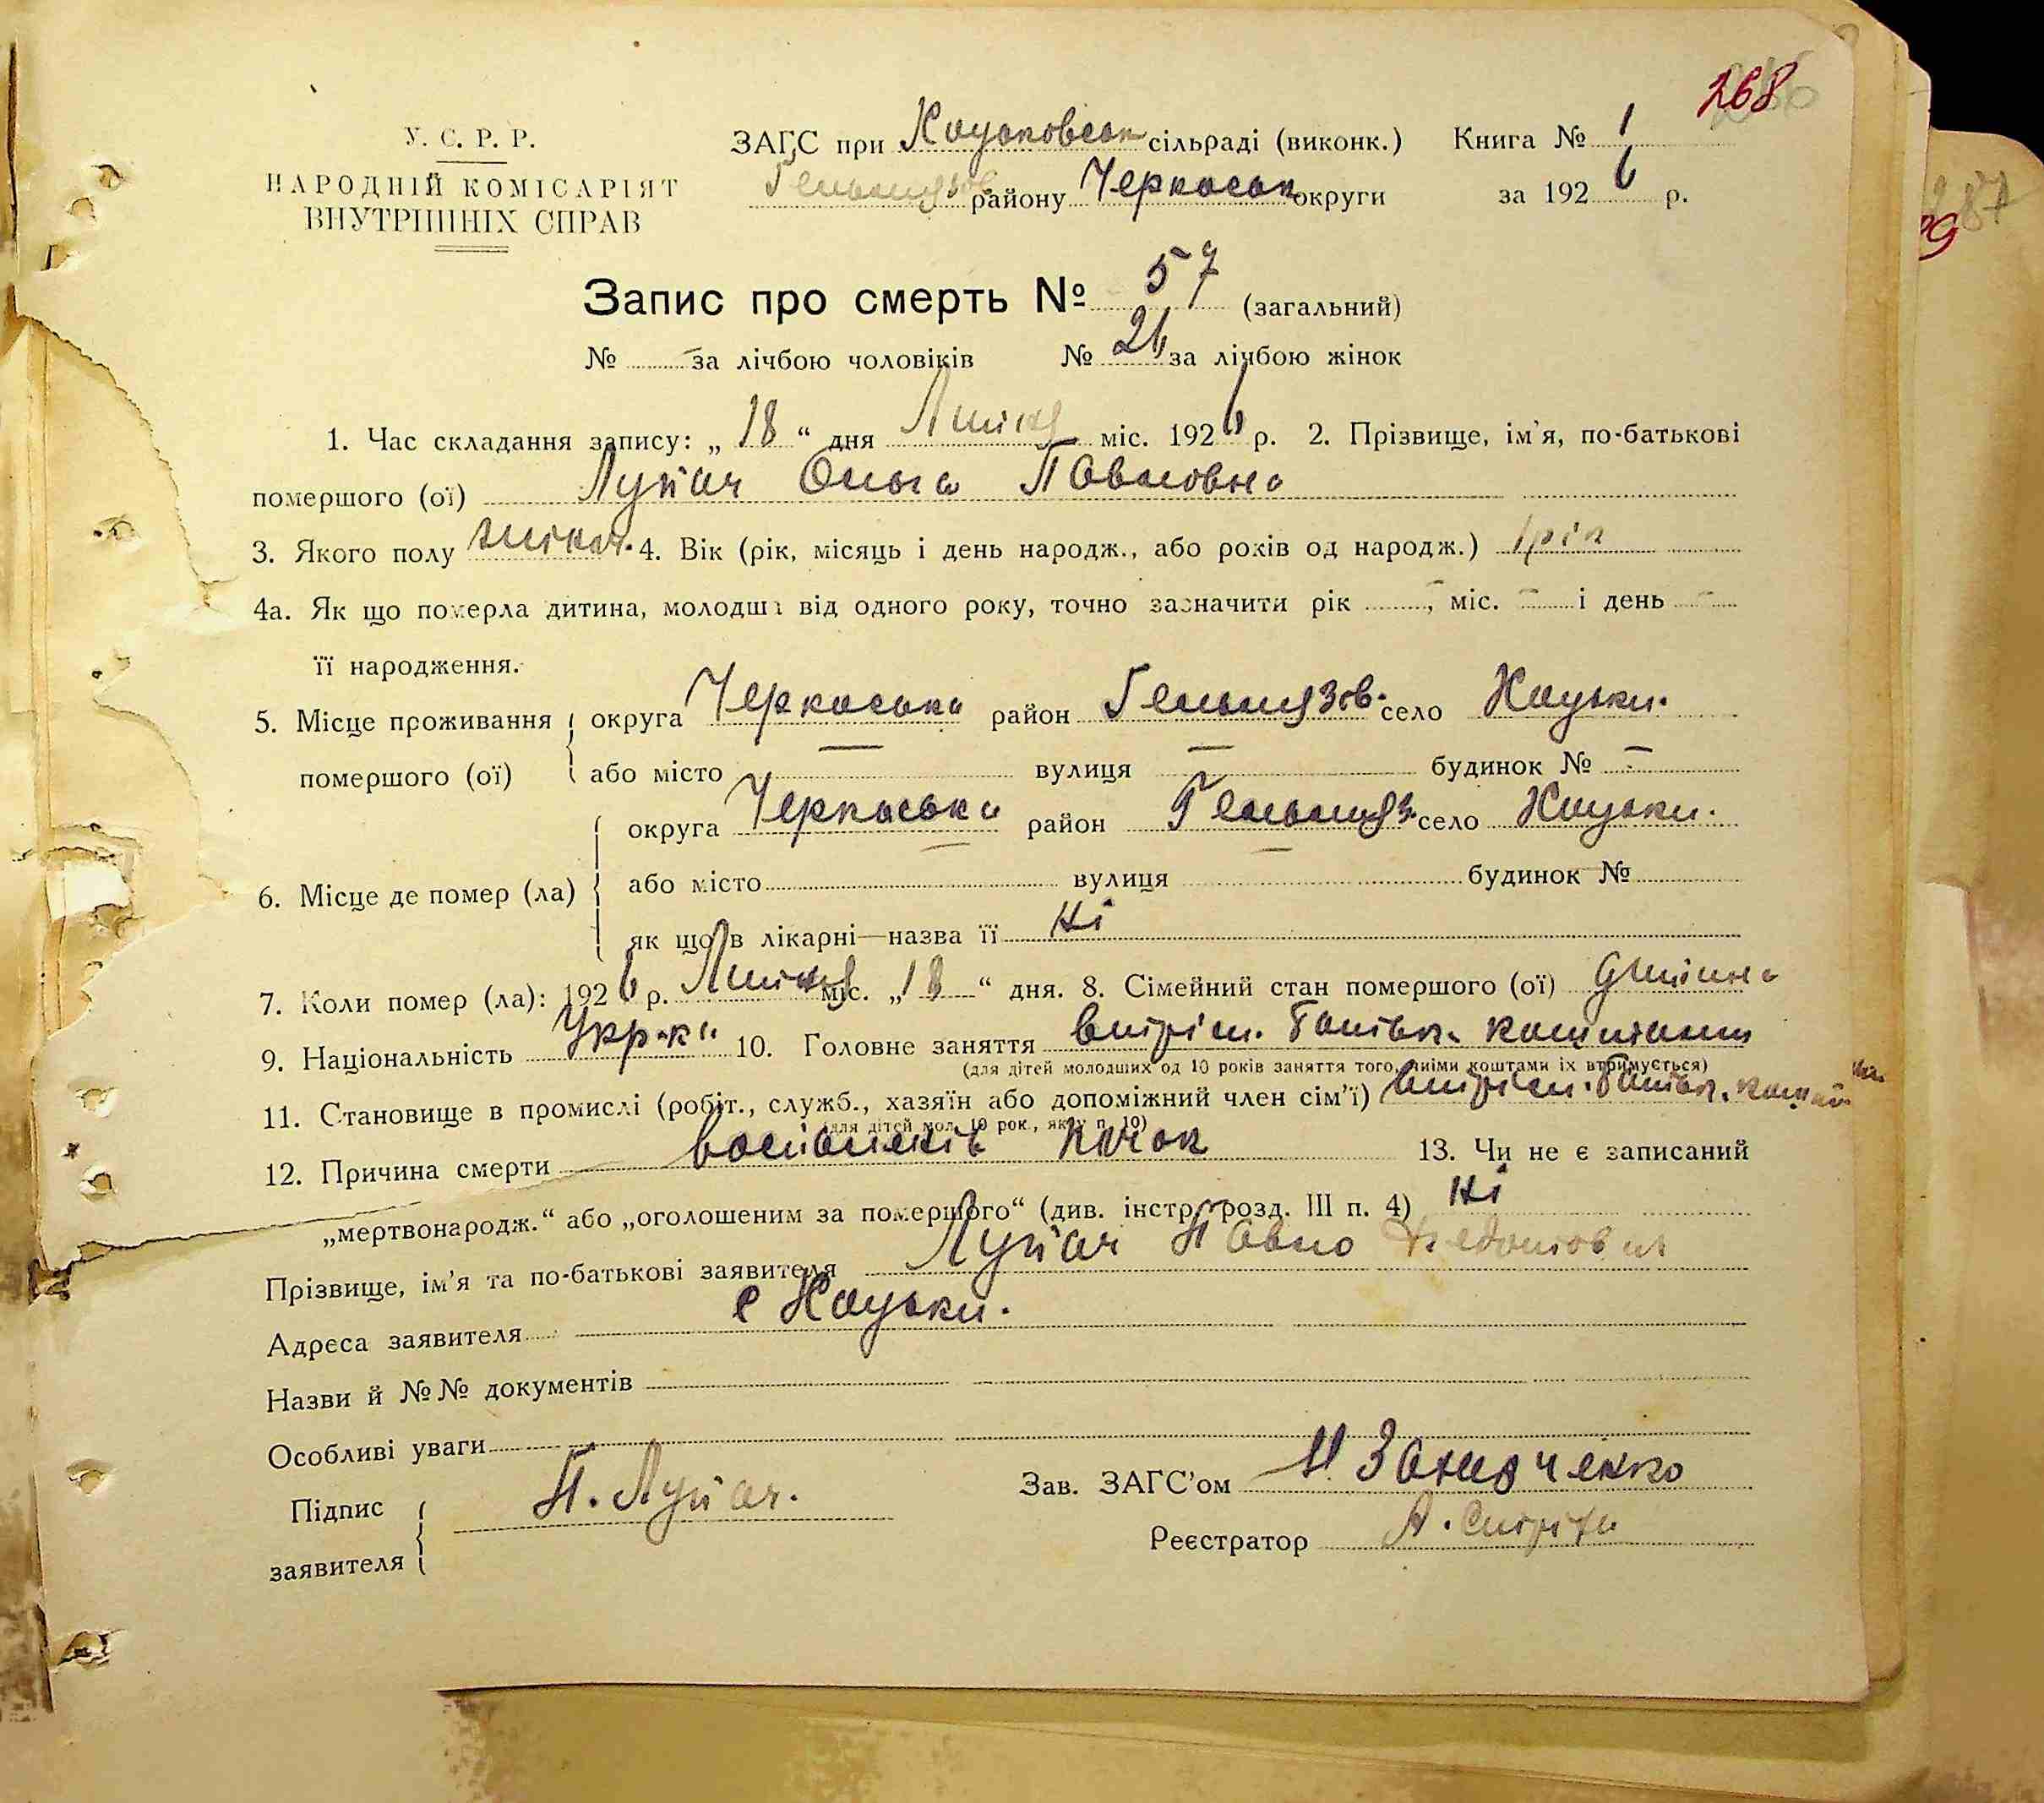 268
У. С. Р. Р.
НАРОДНІЙ КОМІСАРІЯТ
ВНУТРІШНІХ СПРАВ
ЗАГС при Хоцьковськ сільраді (виконк.) Книга № 1
Гельмязів району Черкаськ округи за 1926 р.
87
Запис про смерть № 57 (загальний)
№ — за лічбою чоловіків № 26 за лічбою жінок
1. Час складання запису: „18“ дня Липня міс. 1926 р. 2. Прізвище, ім'я, по-батькові
помершого (ої) Лупач Ольга Павловна
3. Якого полу жіноч. 4. Вік (рік, місяць і день народж., або років од народж.) 1 рік
4а. Як що померла дитина, молодша від одного року, точно зазначити рік —, міс. — і день —
її народження.
5. Місце проживання помершого (ої) округа Черкаська район Гельмязів. село Хоцьки.
або місто — вулиця — будинок № —
6. Місце де помер (ла) округа Черкаська район Гельмяз. село Хоцьки.
або місто — вулиця — будинок №
як що в лікарні—назва її Ні
7. Коли помер (ла): 1926 р. Липня міс. „18“ дня. 8. Сімейний стан помершого (ої) дитина
9. Національність Укр-ка 10. Головне заняття батьк. коштами
(для дітей молодших од 10 років заняття того, чиїми коштами їх втримується)
11. Становище в промислі (робіт., служб., хазяїн або допоміжний член сім'ї) батьк.
(для дітей мол. 10 рок., як у п. 10)
12. Причина смерти 13. Чи не є записаний
„мертвонародж.“ або „оголошеним за помершого“ (див. інстр. розд. III п. 4) Ні
Прізвище, ім'я та по-батькові заявителя Лупач Павло Федотович
Адреса заявителя с Хоцьки.
Назви й №№ документів
Особливі уваги
Підпис заявителя П. Лупач.
Зав. ЗАГС'ом
Реєстратор